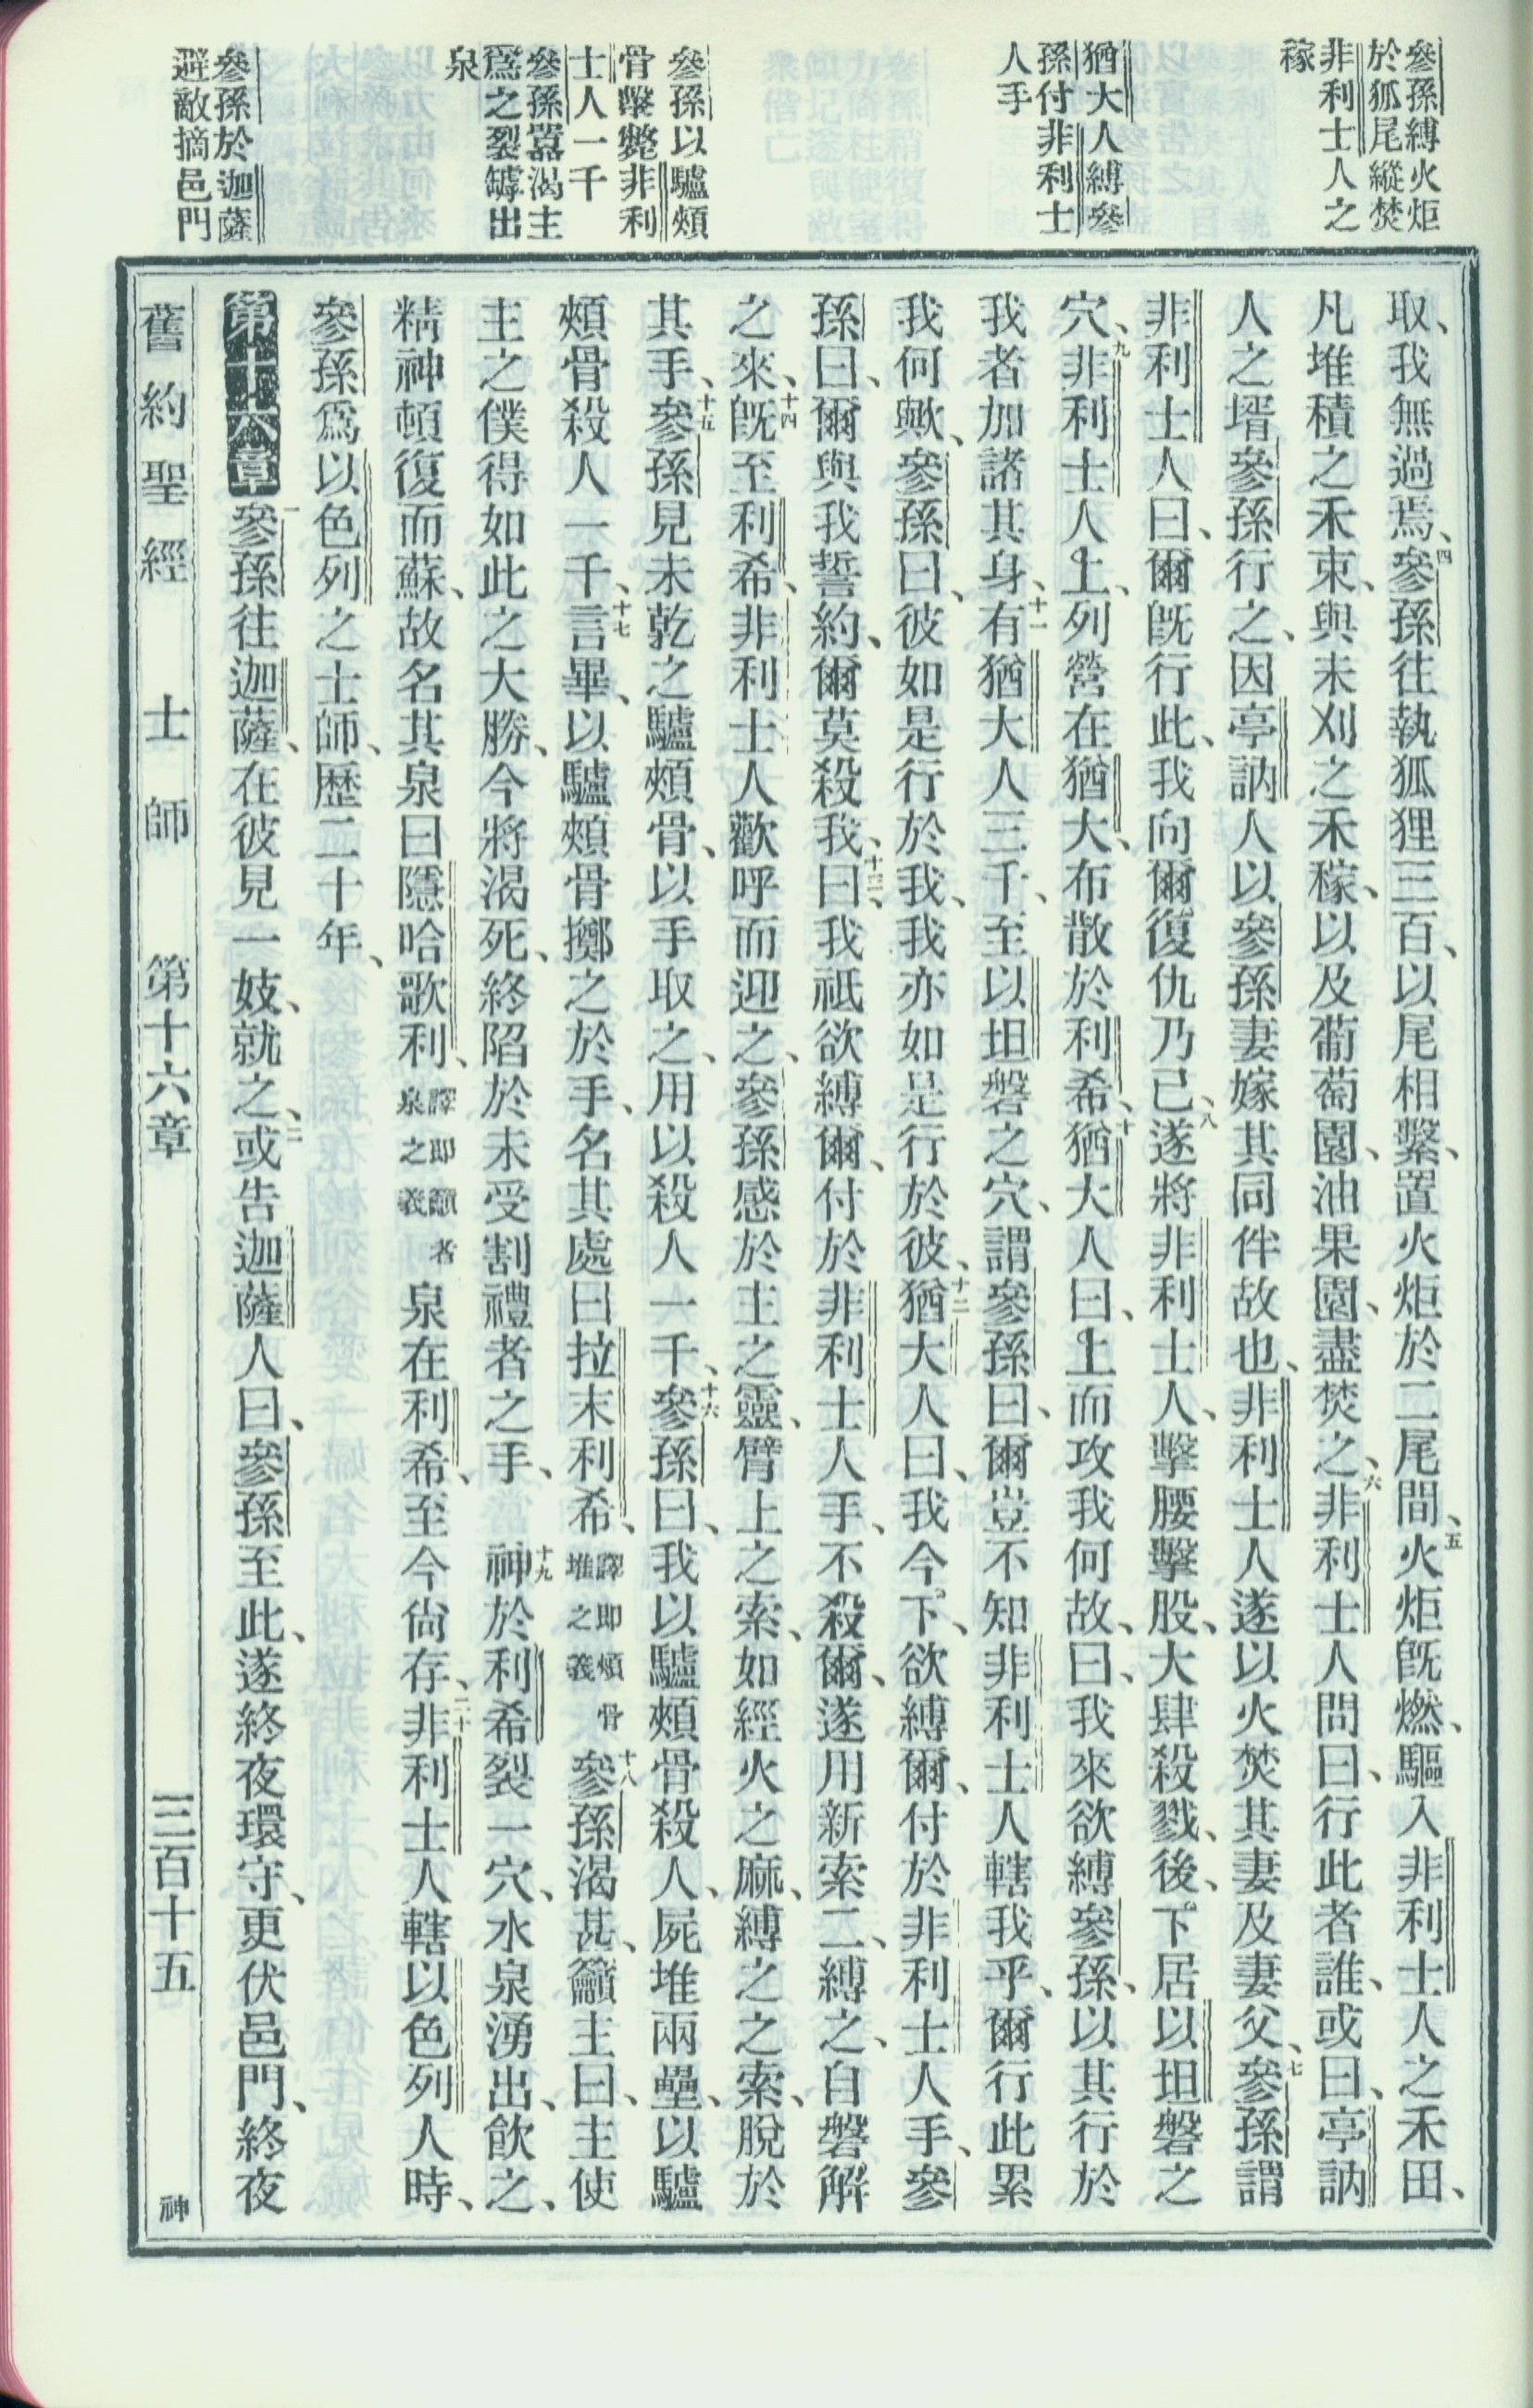 參孫縛火炬
於狐尾縱焚
非利士人之
稼
猶大人縛參
孫付非利士
人手
參孫以驢頰
骨擊斃非利
士人一千
參孫嚣渴主
爲之裂罅出
泉
參孫於迦薩
避敵摘邑門
取、我無過焉、四參孫往執狐狸三百、以尾相繫、置火炬於二尾間、五火炬旣燃、驅入非利士人之禾田、
凡堆積之禾束、與未刈之禾稼、以及葡萄園、油果園、盡焚之、六非利士人問曰、行此者誰、或曰、亭訥
人之壻參孫行之、因亭訥人以參孫妻嫁其同伴故也、非利士人遂以火焚其妻及妻父、七參孫謂
非利士人曰、爾旣行此、我向爾復仇乃已、八遂將非利士人、擊腰擊股、大肆殺戮、後、下居以坦磐之
穴、九非利士人上、列營在猶大、布散於利希、十猶大人曰、上而攻我何故、曰、我來欲縛參孫、以其行於
我者加諸其身、十一有猶大人三千、至以坦磐之穴、謂參孫曰、爾豈不知非利士人轄我乎、爾行此累
我何歟、參孫曰、彼如是行於我、我亦如是行於彼、十二猶大人曰、我今下、欲縛爾、付於非利士人手、參
孫曰、爾與我誓約、爾莫殺我、十三曰、我祇欲縛爾、付於非利士人手、不殺爾、遂用新索二、縛之、自磐解
之來、十四旣至利希、非利士人歡呼而迎之、參孫感於主之靈、臂上之索、如經火之麻、縛之之索、脫於
其手、十五參孫見未乾之驢頰骨、以手取之、用以殺人一千、十六參孫曰、我以驢頰骨殺人、屍堆兩壘、以驢
頰骨殺人一千、十七言畢、以驢頰骨擲之於手、名其處曰拉末利希、譯卽頰骨堆之義十八參孫渴甚、籲主曰、主使
主之僕得如此之大勝、今將渴死、終陷於未受割禮者之手、十九神於利希裂一穴、水泉湧出、飲之、
精神頓復而蘇、故名其泉曰隱哈歌利、譯卽籲者泉之義泉在利希、至今尙存、二十非利士人轄以色列人時、
參孫爲以色列之士師、歷二十年、
第十六章一參孫往迦薩、在彼見一妓、就之、二或告迦薩人曰、參孫至此、遂終夜環守、更伏邑門、終夜
舊約聖經 士師 第十六章 三百十五 神